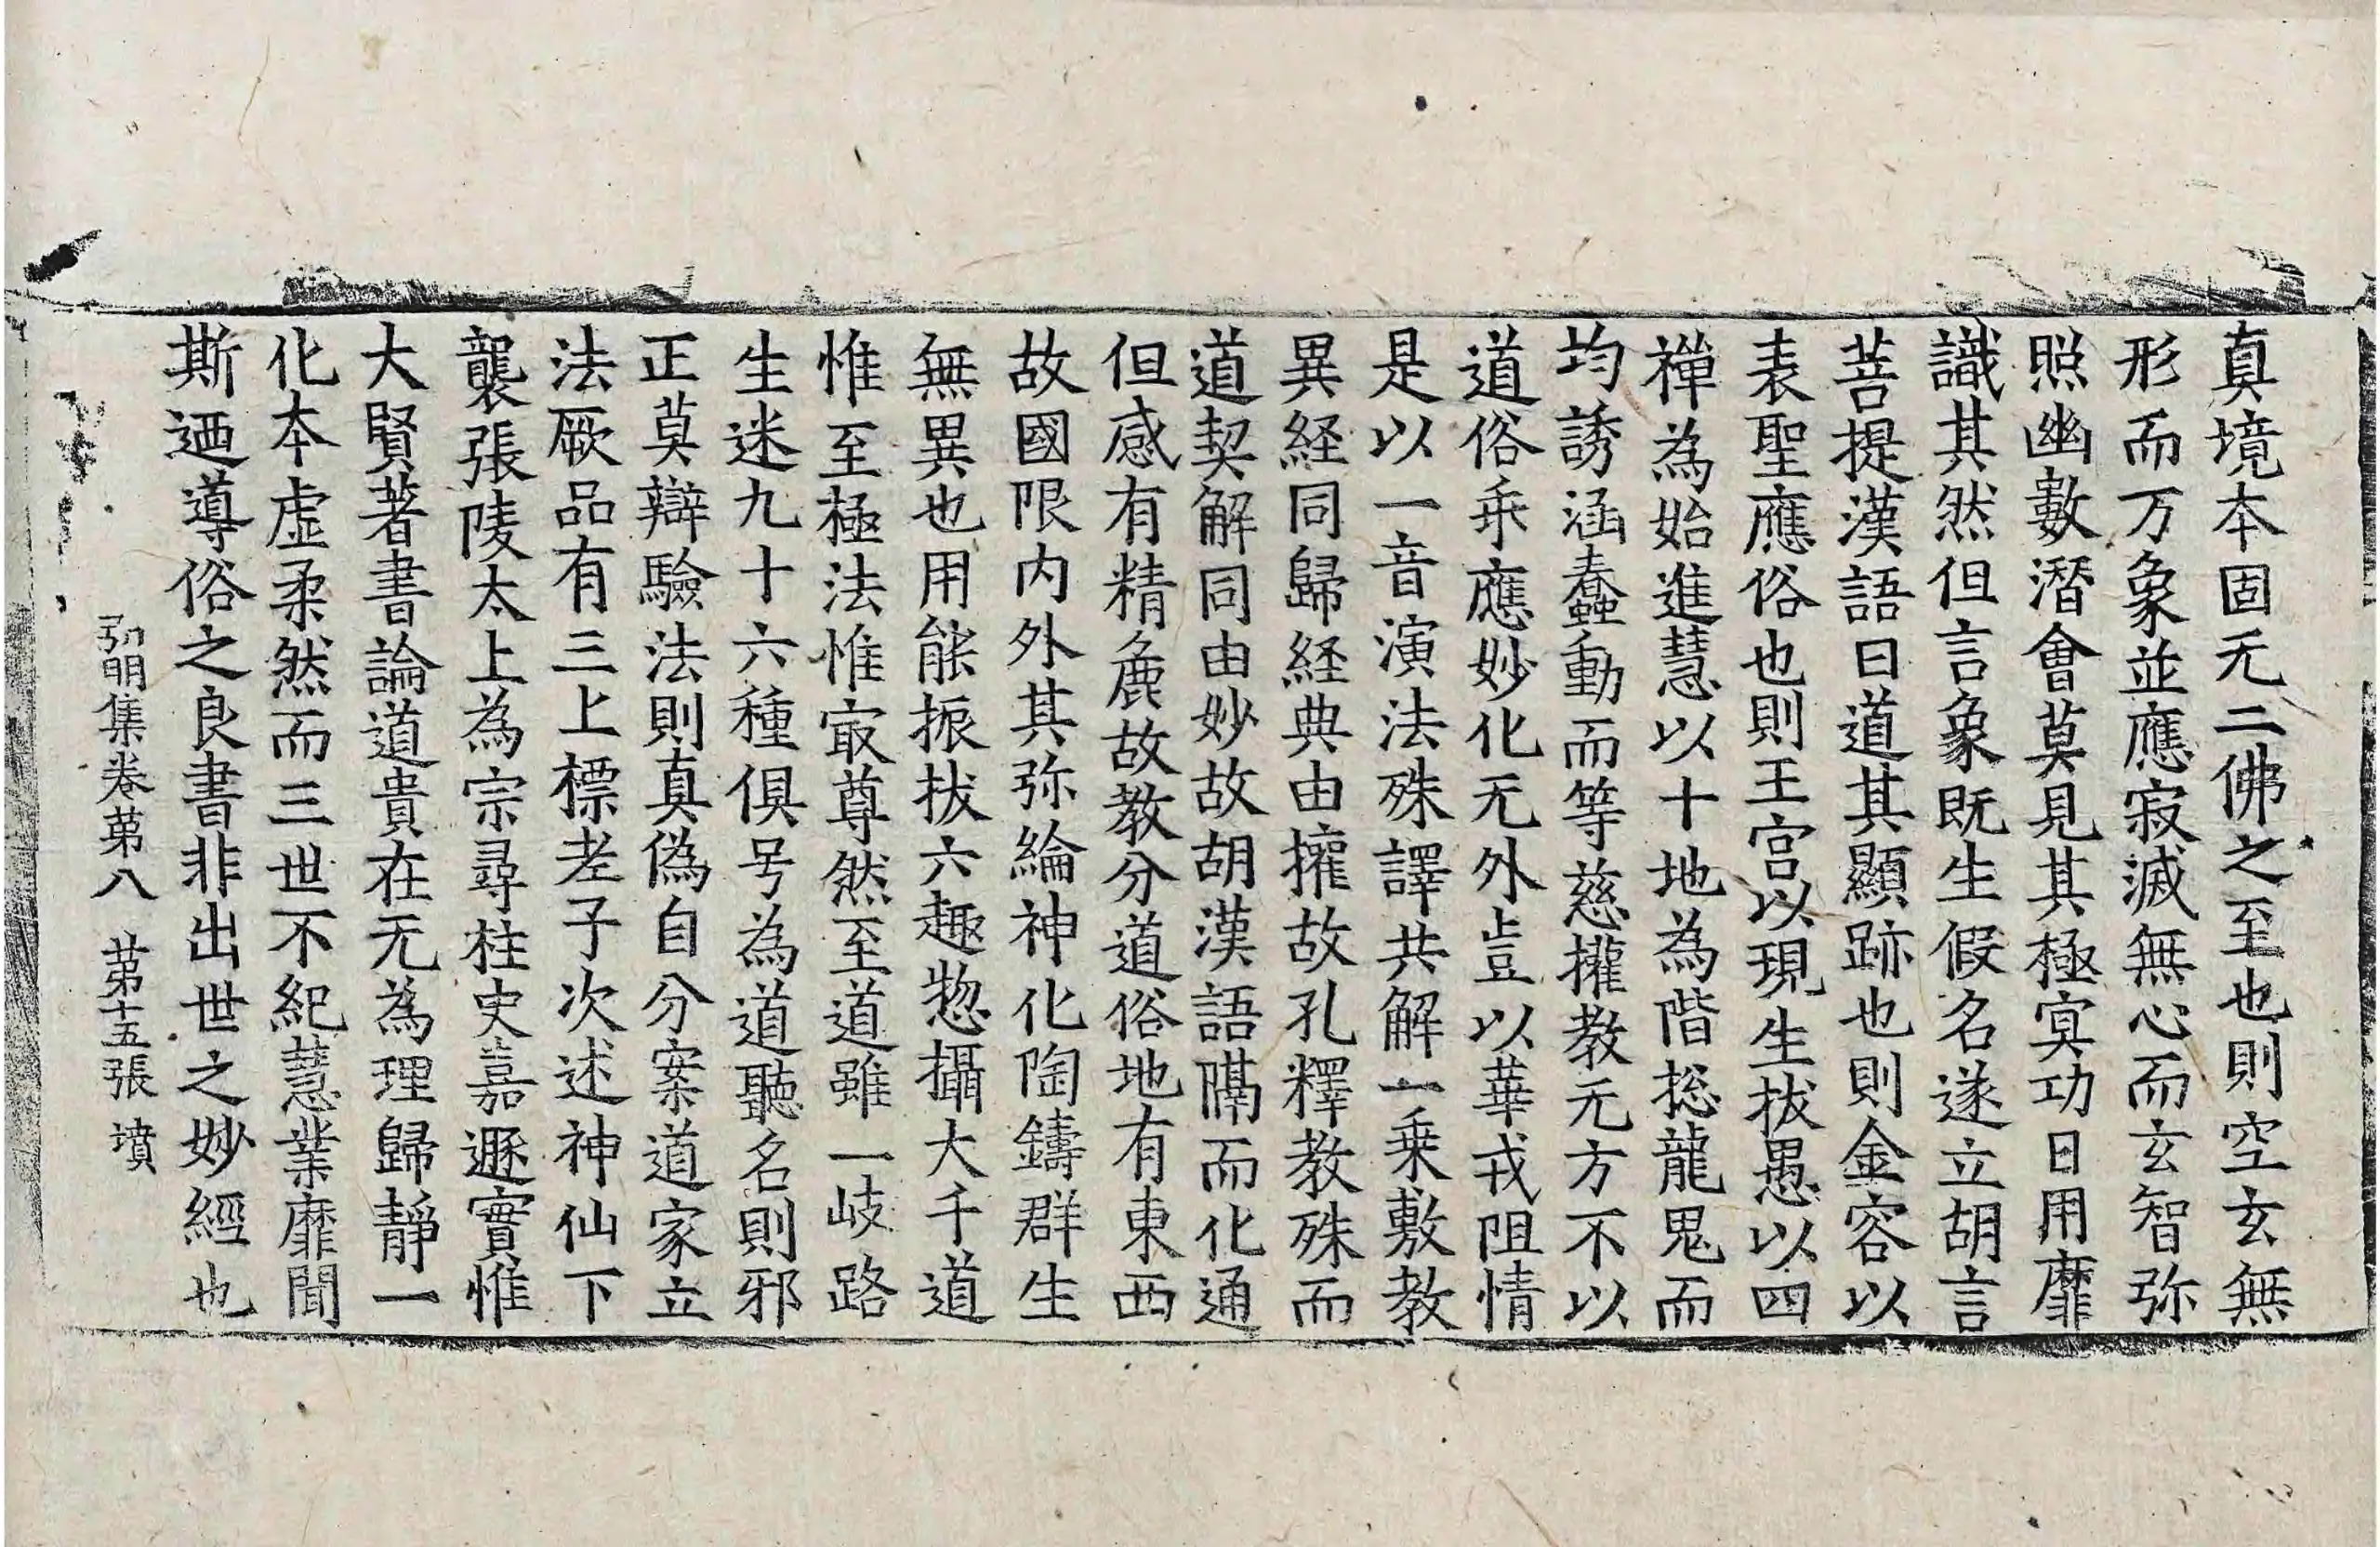 真境本固无二佛之至也則空玄無
形而万象並應寂滅無心而玄智弥
照幽數潛會莫見其極寞功日用靡
識其然但言象既生假名遂立胡言
菩提漢語曰道其顯跡也則金容以
表聖應俗也則王宮以現生拔愚以四
禪為始進慧以十地為階捴龍鬼而
均誘涵蠢動而等慈攉教无方不以
道俗乖應妙化无外豈以華戎阻情
是以一音演法殊譯共解一乗敷教
異経同歸経典由攉故孔釋教殊而
道契解同由妙故胡漢語隔而化通
但感有精麁故教分道俗地有東西
故國限内外其弥綸神化陶鑄群生
無異也用能振拔六趣惣攝大千道
惟至極法惟㝡尊然至道雖一岐路
生迷九十六種俱号為道聽名則邪
正莫辯驗法則真偽自分案道家立
法厥品有三上標老子次述神仙下
襲張陵太上為宗尋柱史嘉遯實惟
大賢著書論道貴在无為理歸靜一
化本虛柔然而三世不紀慧業靡聞
斯迺導俗之良書非出世之妙經也
弘明集卷苐八 苐十五張 墳